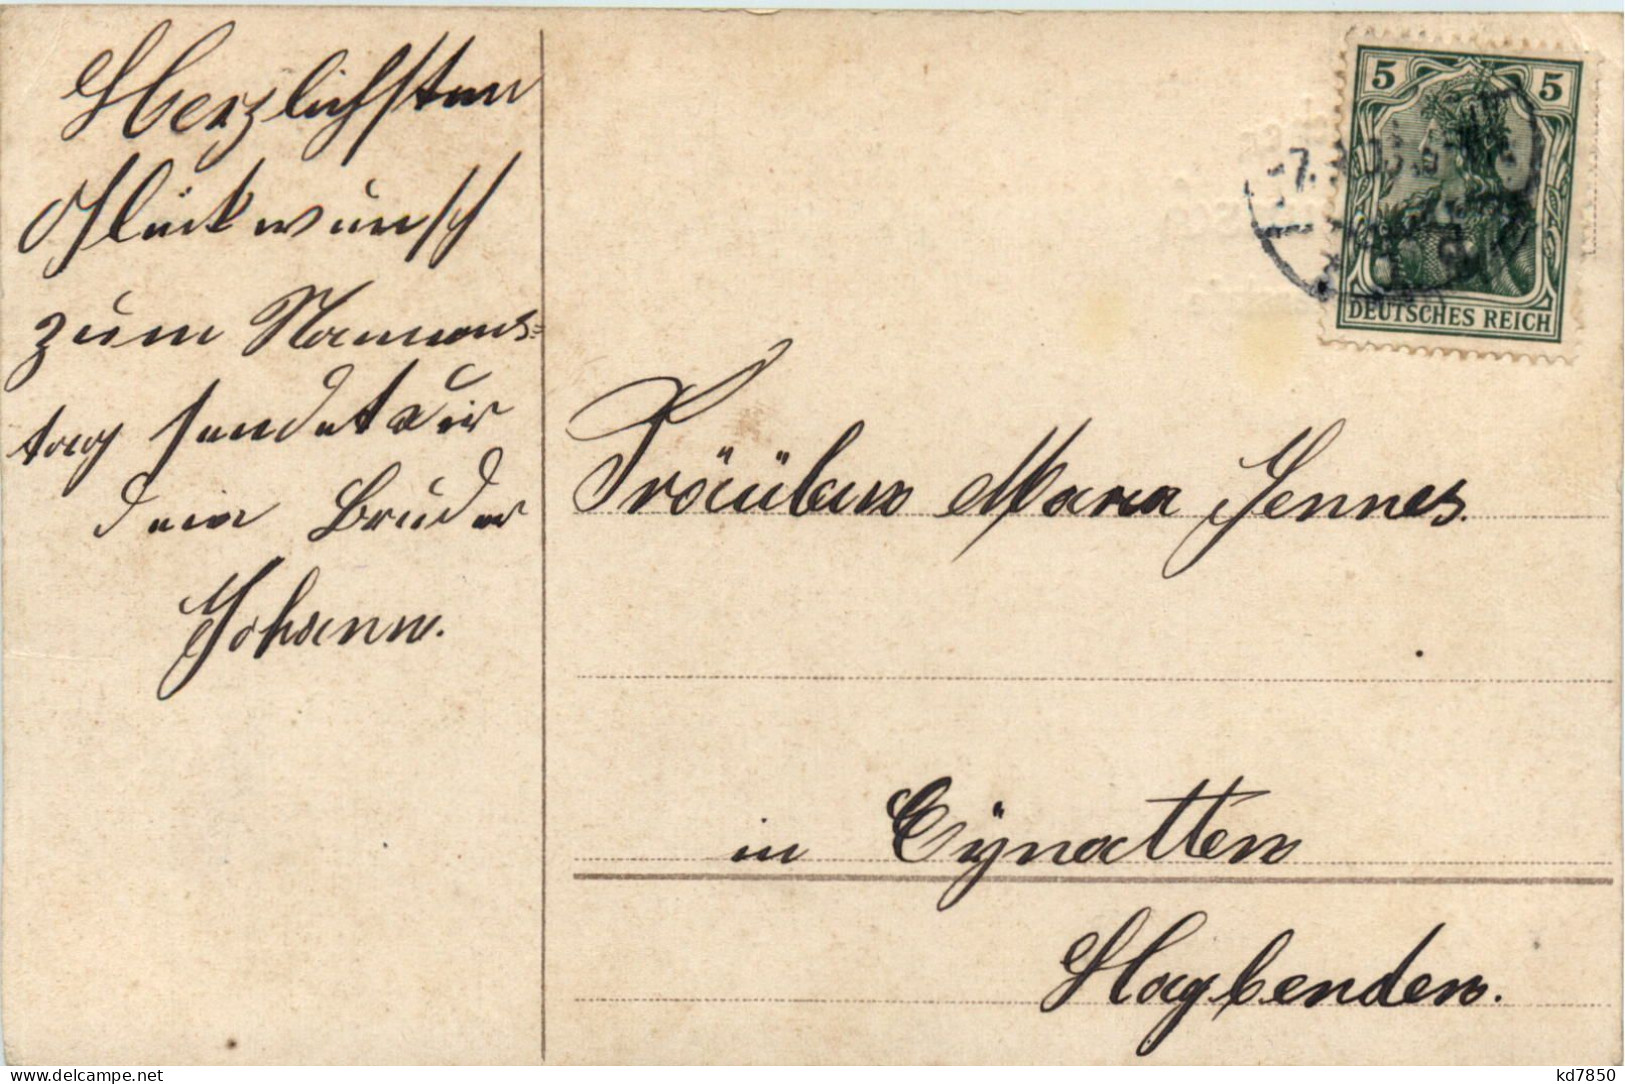 Herzlichsten
Glückwunsch
zum Namens=
tag sendet dir
dein Bruder
Johann.
5 5
DEUTSCHES REICH
Fräülein Maria Jennes.
in Eÿnatten
Hagbenden.
kd7850